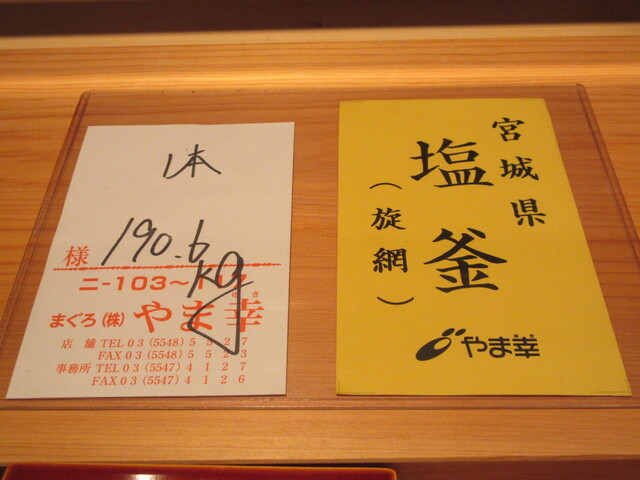 1本
190.6
kg
様
ニ-103〜117
まぐろ(株)やま幸
ゆき
店舗 TEL03(5548)5527
FAX03(5548)5523
事務所 TEL03(5547)4127
FAX03(5547)4126
宮城県
塩釜
(旋網)
やま幸